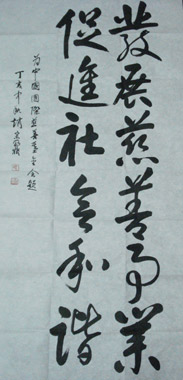 發展慈善事業
促進社會和諧
为中國國際慈善基金會題
丁亥年秋